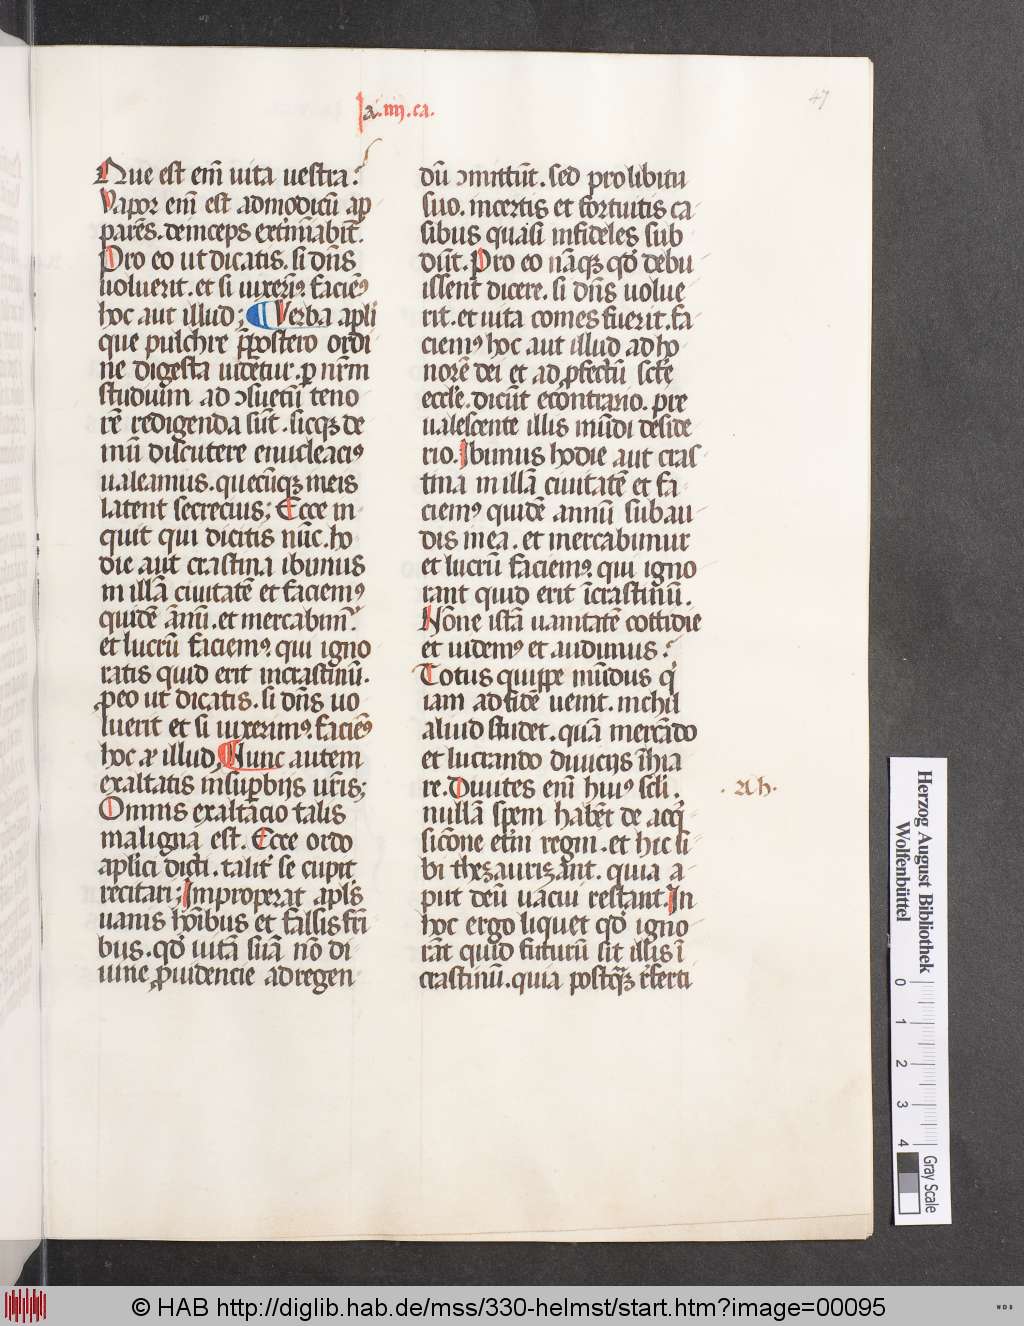 47
Ja. iiij. ca.
Que est em̄ uita uestra?
Vapor em̄ est admodicū ap
parēs. deinceps extīm̄abit̄.
Pro eo ut dicatis. si dn̄s
uoluerit. et si uixerim⁹ faciem⁹
hoc aut illud; Verba apli
que pulchre p̄postero ordi
ne digesta uidētur. ꝑ nr̄m
studium ad ɔsuetū teno
rē redigenda sūt. sicqꝫ de
mū discutere enucleaci⁹
ualeamus. quecūqꝫ in eis
latent secrecius; Ecce in
quit qui dicitis nūc. ho
die aut crastina ibimus
in illā ciuitatē et faciem⁹
quidē ānū. et mercabim̄.
et lucrū faciem⁹. qui igno
ratis quid erit incrastinū.
ꝓ eo ut dicatis. si dn̄s uo
luerit et si uixerim⁹. faciem⁹
hoc aꝛ illud, Nunc autem
exaltatis insuꝑbijs ur̄is;
Omnis exaltacio talis
maligna est. Ecce ordo
aplici dicti. talit̄ se cupit
recitari; Improperat apls̄
uanis hoībus et falsis fr̄i
bus. qd̄ uitā suā nō di
uine ꝓuidencie adregen
dū ɔmittūt. sed prolibitu
suo. incertis et fortuitis ca
sibus quasi infideles sub
dūt. Pro eo nāqꝫ qd̄ debu
issent dicere. si dn̄s uolue
rit. et uita comes fuerit. fa
ciem⁹ hoc aut illud ad ho
norē dei et ad ꝓfectū scē
eccl̄e. dicūt ecōntrario. pre
ualescente illis mūdi deside
rio. Ibimus hodie aut cras
tina in illā ciuitatē et fa
ciem⁹ quidē annū subau
dis in ea. et mercabimur
et lucrū faciem⁹. qui igno
rant quid erit īcrastinū.
Nōne istā uanitatē cottidie
et uidem⁹ et audimus?
Totus quippe mūdus q̇
iam ad fidē uenit. nichil
aliud studet. quā mercādo
et lucrando diuicijs īhia
re. Diuites em̄ hui⁹ scl̄i.
nullā spem habēt de acq̇
sicōne et̄ni regni. et hic si
bi thezaurizānt. quia a
put deū uacui restant. In
hoc ergo liquet qd̄ igno
rāt quid futurū sit illis ī
crastinū. quia postq̄ꝫ r̄ferti
Herzog August Bibliothek
Wolfenbüttel
0 1 2 3 4
Gray Scale
© HAB http://diglib.hab.de/mss/330-helmst/start.htm?image=00095
WDB